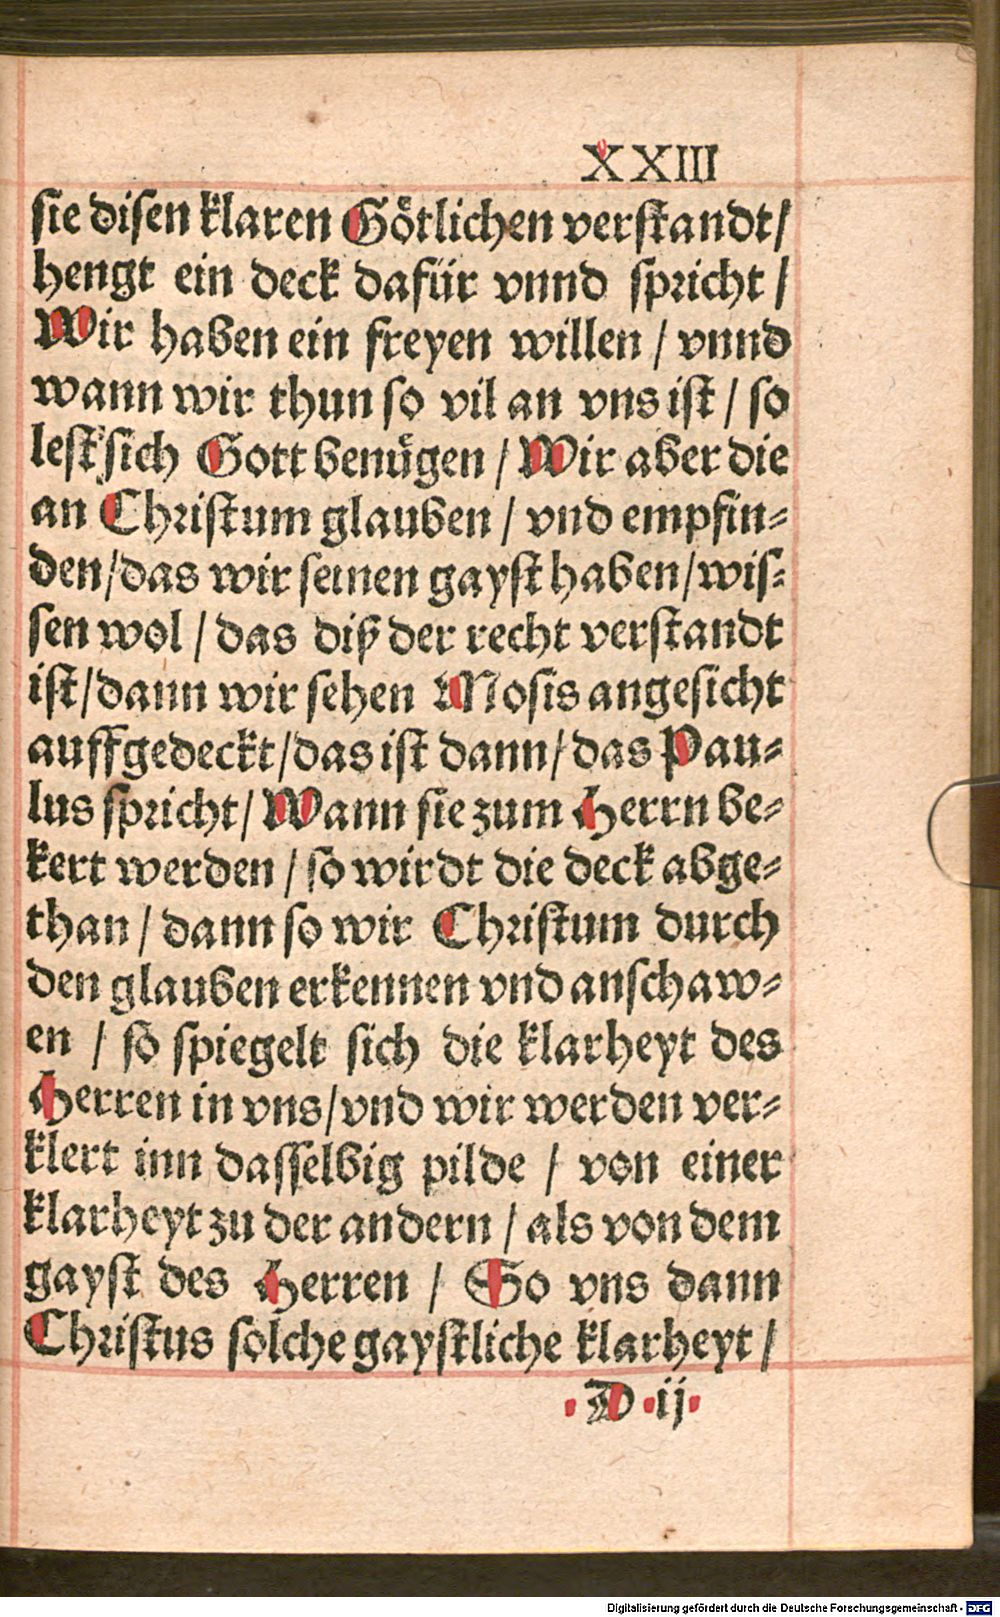 XXIII
sie disen klaren Goͤtlichen verstandt/
hengt ein deck dafür vnnd spricht /
Wir haben ein freyen willen / vnnd
wann wir thun so vil an vns ist / so
lest sich Gott benuͤgen / Wir aber die
an Christum glauben / vnd empfin-
den/das wir seinen gayst haben/wis-
sen wol / das diß der recht verstandt
ist/dann wir sehen Mosis angesicht
auffgedeckt/das ist dann/das Pau-
lus spricht/Wann sie zum Herrn be-
kert werden / so wirdt die deck abge-
than / dann so wir Christum durch
den glauben erkennen vnd anschaw-
en / so spiegelt sich die klarheyt des
Herren in vns/vnd wir werden ver-
klert inn dasselbig pilde / von einer
klarheyt zu der andern / als von dem
gayst des Herren / So vns dann
Christus solche gaystliche klarheyt /
D ij
Digitalisierung gefördert durch die Deutsche Forschungsgemeinschaft - DFG